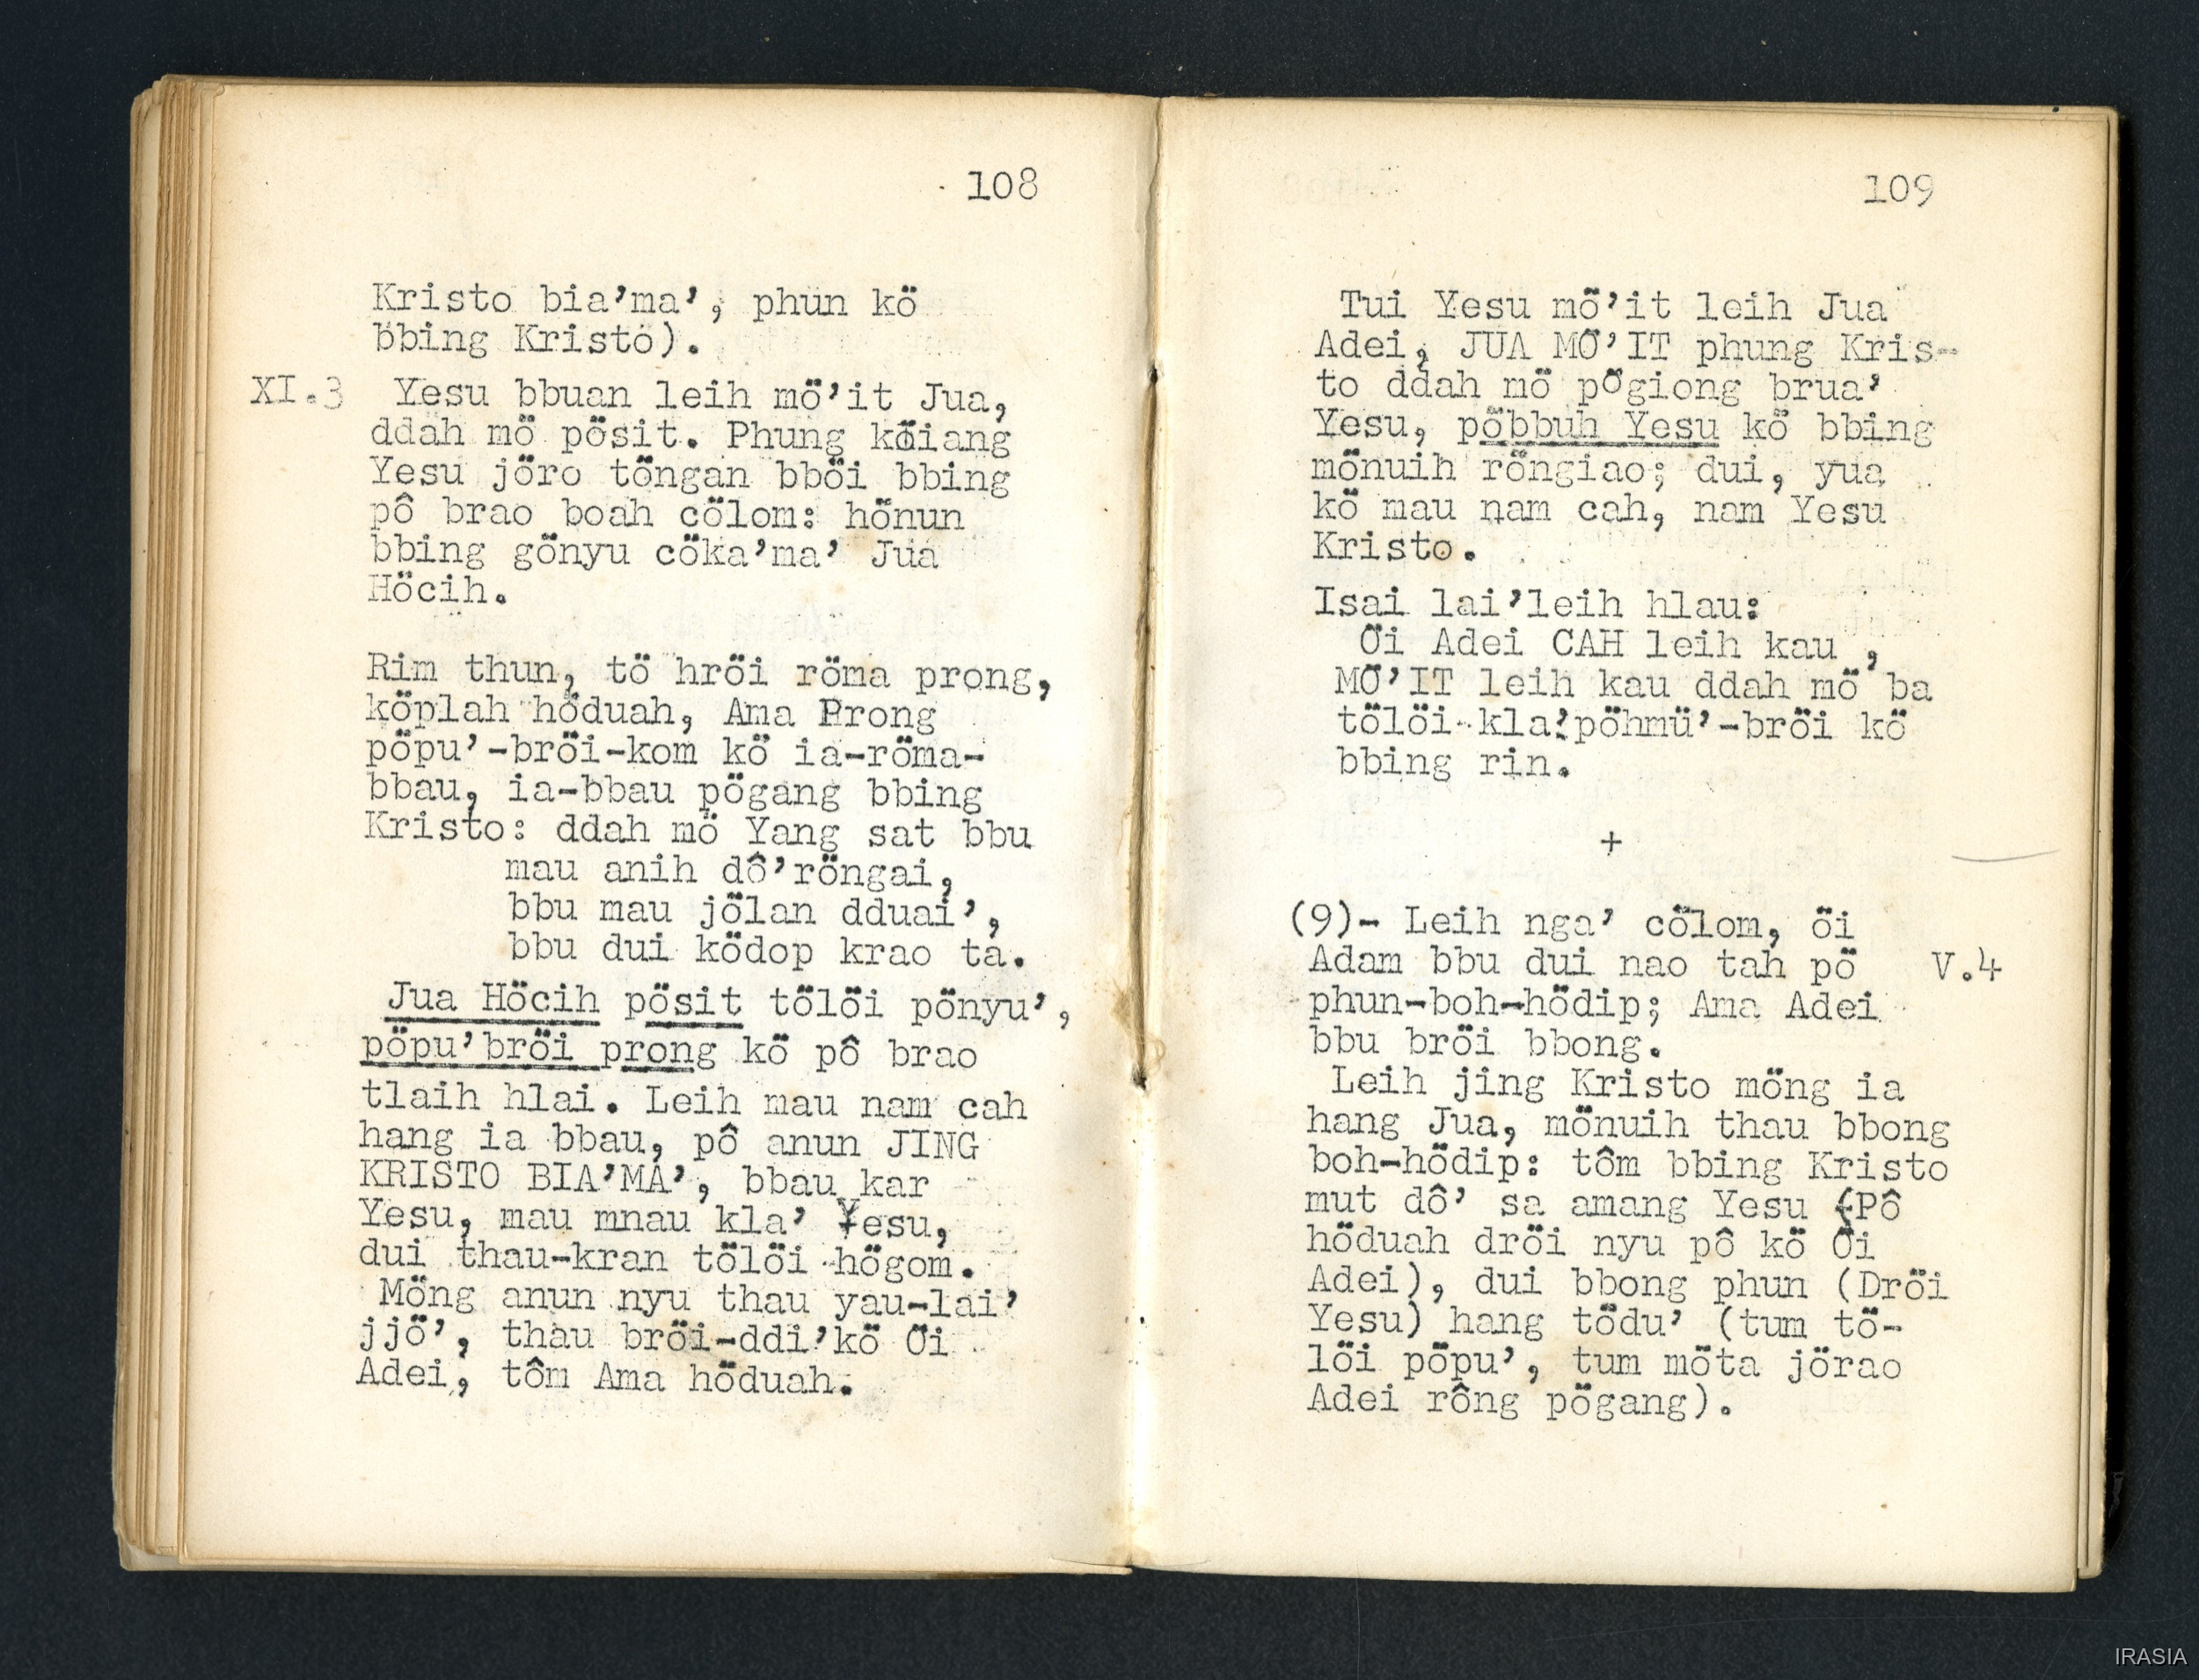 108
Kristo bia’ma’, phun kö
bbing Kristö).
XI.3 Yesu bbuan leih mö’it Jua,
ddah mö pösit. Phung köiang
Yesu jöro töngan bböi bbing
pô brao boah cölom: hönun
bbing gönyu cöka’ma’ Jua
Höcih.
Rim thun, tö hröi röma prong,
köplah höduah, Ama Prong
pöpu’-bröi-kom kö ia-röma-
bbau, ia-bbau pögang bbing
Kristo: ddah mö Yang sat bbu
mau anih dô’röngai,
bbu mau jölan dduai’,
bbu dui ködop krao ta.
Jua Höcih pösit tölöi pönyu’,
pöpu’bröi prong kö pô brao
tlaih hlai. Leih mau nam cah
hang ia bbau, pô anun JING
KRISTO BIA’MA’, bbau kar
Yesu, mau mnau kla’ Yesu,
dui thau-kran tölöi högom.
Möng anun nyu thau yau-lai’
jjö’, thau bröi-ddi’kö Öi
Adei, tôm Ama höduah.
109
Tui Yesu mö’it leih Jua
Adei, JUA MÖ’IT phung Kris-
to ddah mö pögiong brua’
Yesu, pöbbuh Yesu kö bbing
mönuih röngiao; dui, yua
kö mau nam cah, nam Yesu
Kristo.
Isai lai’leih hlau:
Öi Adei CAH leih kau ,
MÖ’IT leih kau ddah mö ba
tölöi kla’pöhmü’-bröi kö
bbing rin.
+
(9)- Leih nga’ cölom, öi
Adam bbu dui nao tah pö V.4
phun-boh-hödip; Ama Adei
bbu bröi bbong.
Leih jing Kristo möng ia
hang Jua, mönuih thau bbong
boh-hödip: tôm bbing Kristo
mut dô’ sa amang Yesu (Pô
höduah dröi nyu pô kö Öi
Adei), dui bbong phun (Dröi
Yesu) hang tödu’ (tum tö-
löi pöpu’, tum möta jörao
Adei rông pögang).
IRASIA